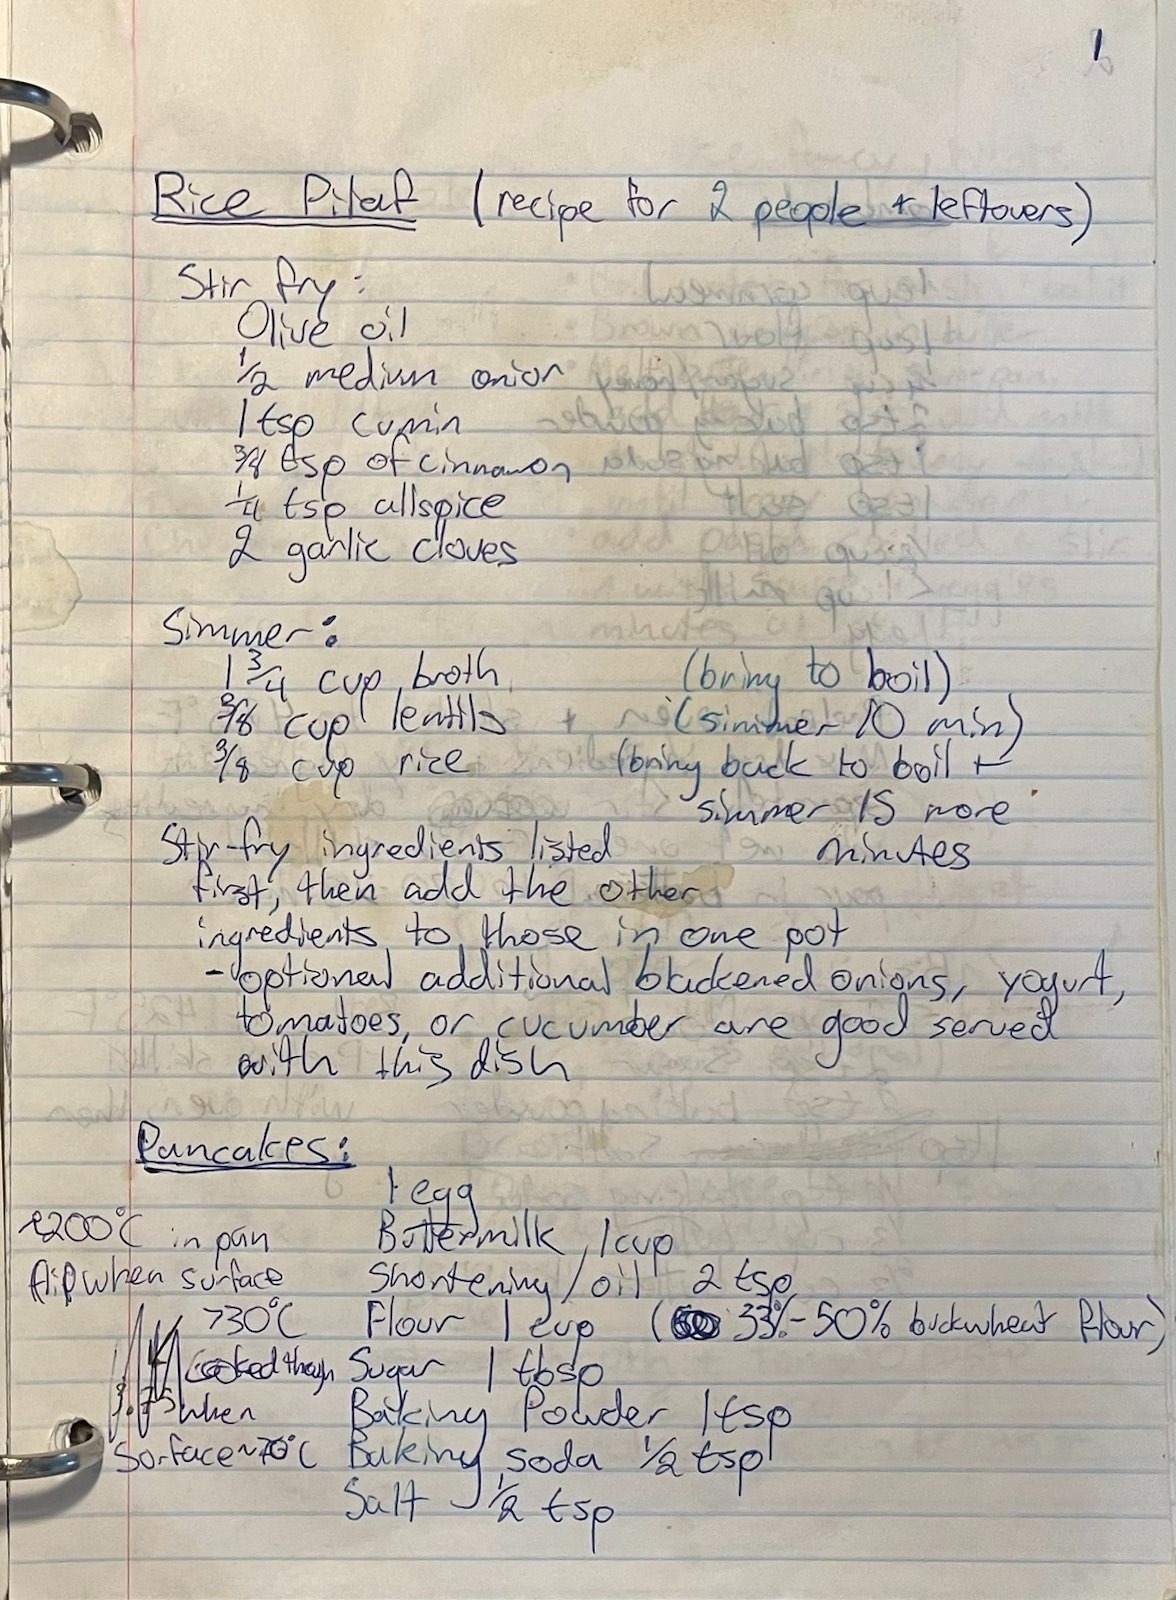 1
Rice Pilaf (recipe for 2 people + leftovers)
Stir fry:
Olive oil
1/2 medium onion
1 tsp cumin
3/8 tsp of cinnamon
1/4 tsp allspice
2 garlic cloves
Simmer:
1 3/4 cup broth (bring to boil)
3/8 cup lentils (simmer 10 min)
3/8 cup rice (bring back to boil +
simmer 15 more
minutes
Stir-fry ingredients listed
first, then add the other
ingredients to those in one pot
- optional additional blackened onions, yogurt,
tomatoes, or cucumber are good served
with this dish
Pancakes:
1 egg
~200°C in pan Buttermilk 1 cup
flip when surface Shortening/oil 2 tsp
>30°C Flour 1 cup (33%-50% buckwheat flour)
cooked though Sugar 1 tbsp
when Baking Powder 1 tsp
surface ~70°C Baking soda 1/2 tsp
Salt 1/2 tsp